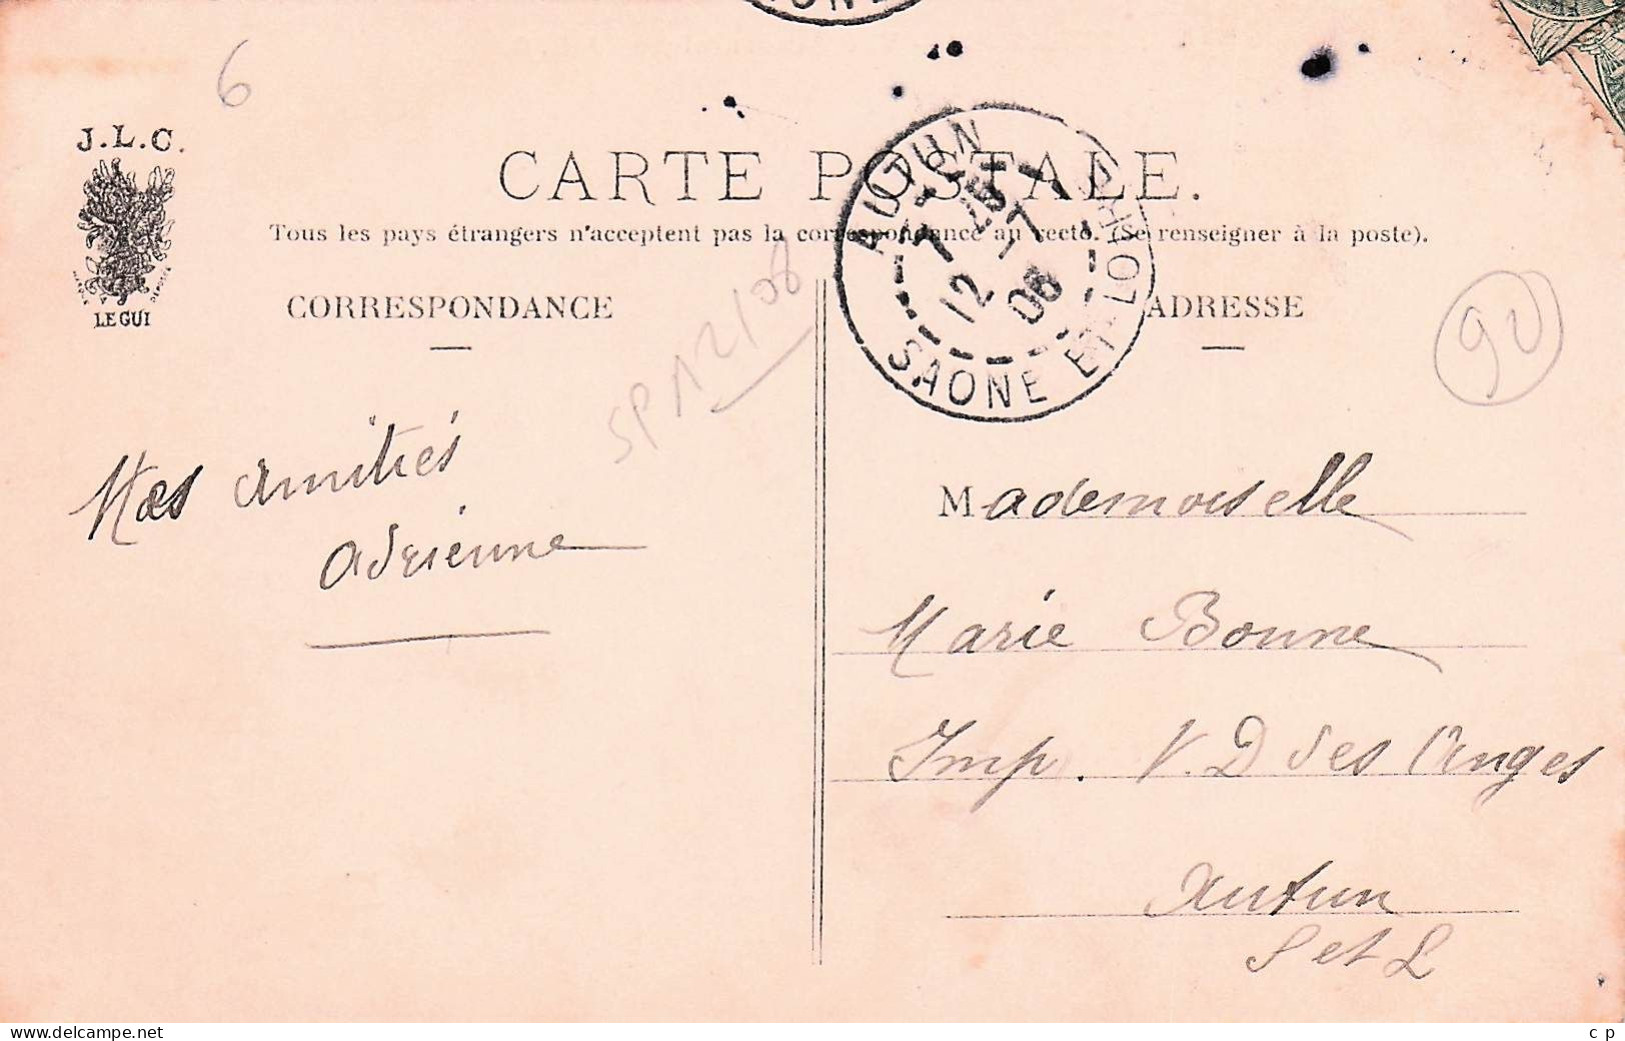 6
J.L.C.
LE GUI
CARTE POSTALE.
Tous les pays étrangers n'acceptent pas la correspondance au recto. (Se renseigner à la poste).
AUTUN
7 25
12 - 7
06
SAONE ET-LOIRE
CORRESPONDANCE
ADRESSE
SP 112/08
90
Mes amitiés
Adrienne
Mademoiselle
Marie Bonne
Imp. V. D des Anges
Autun
S et L
www.delcampe.net
c p